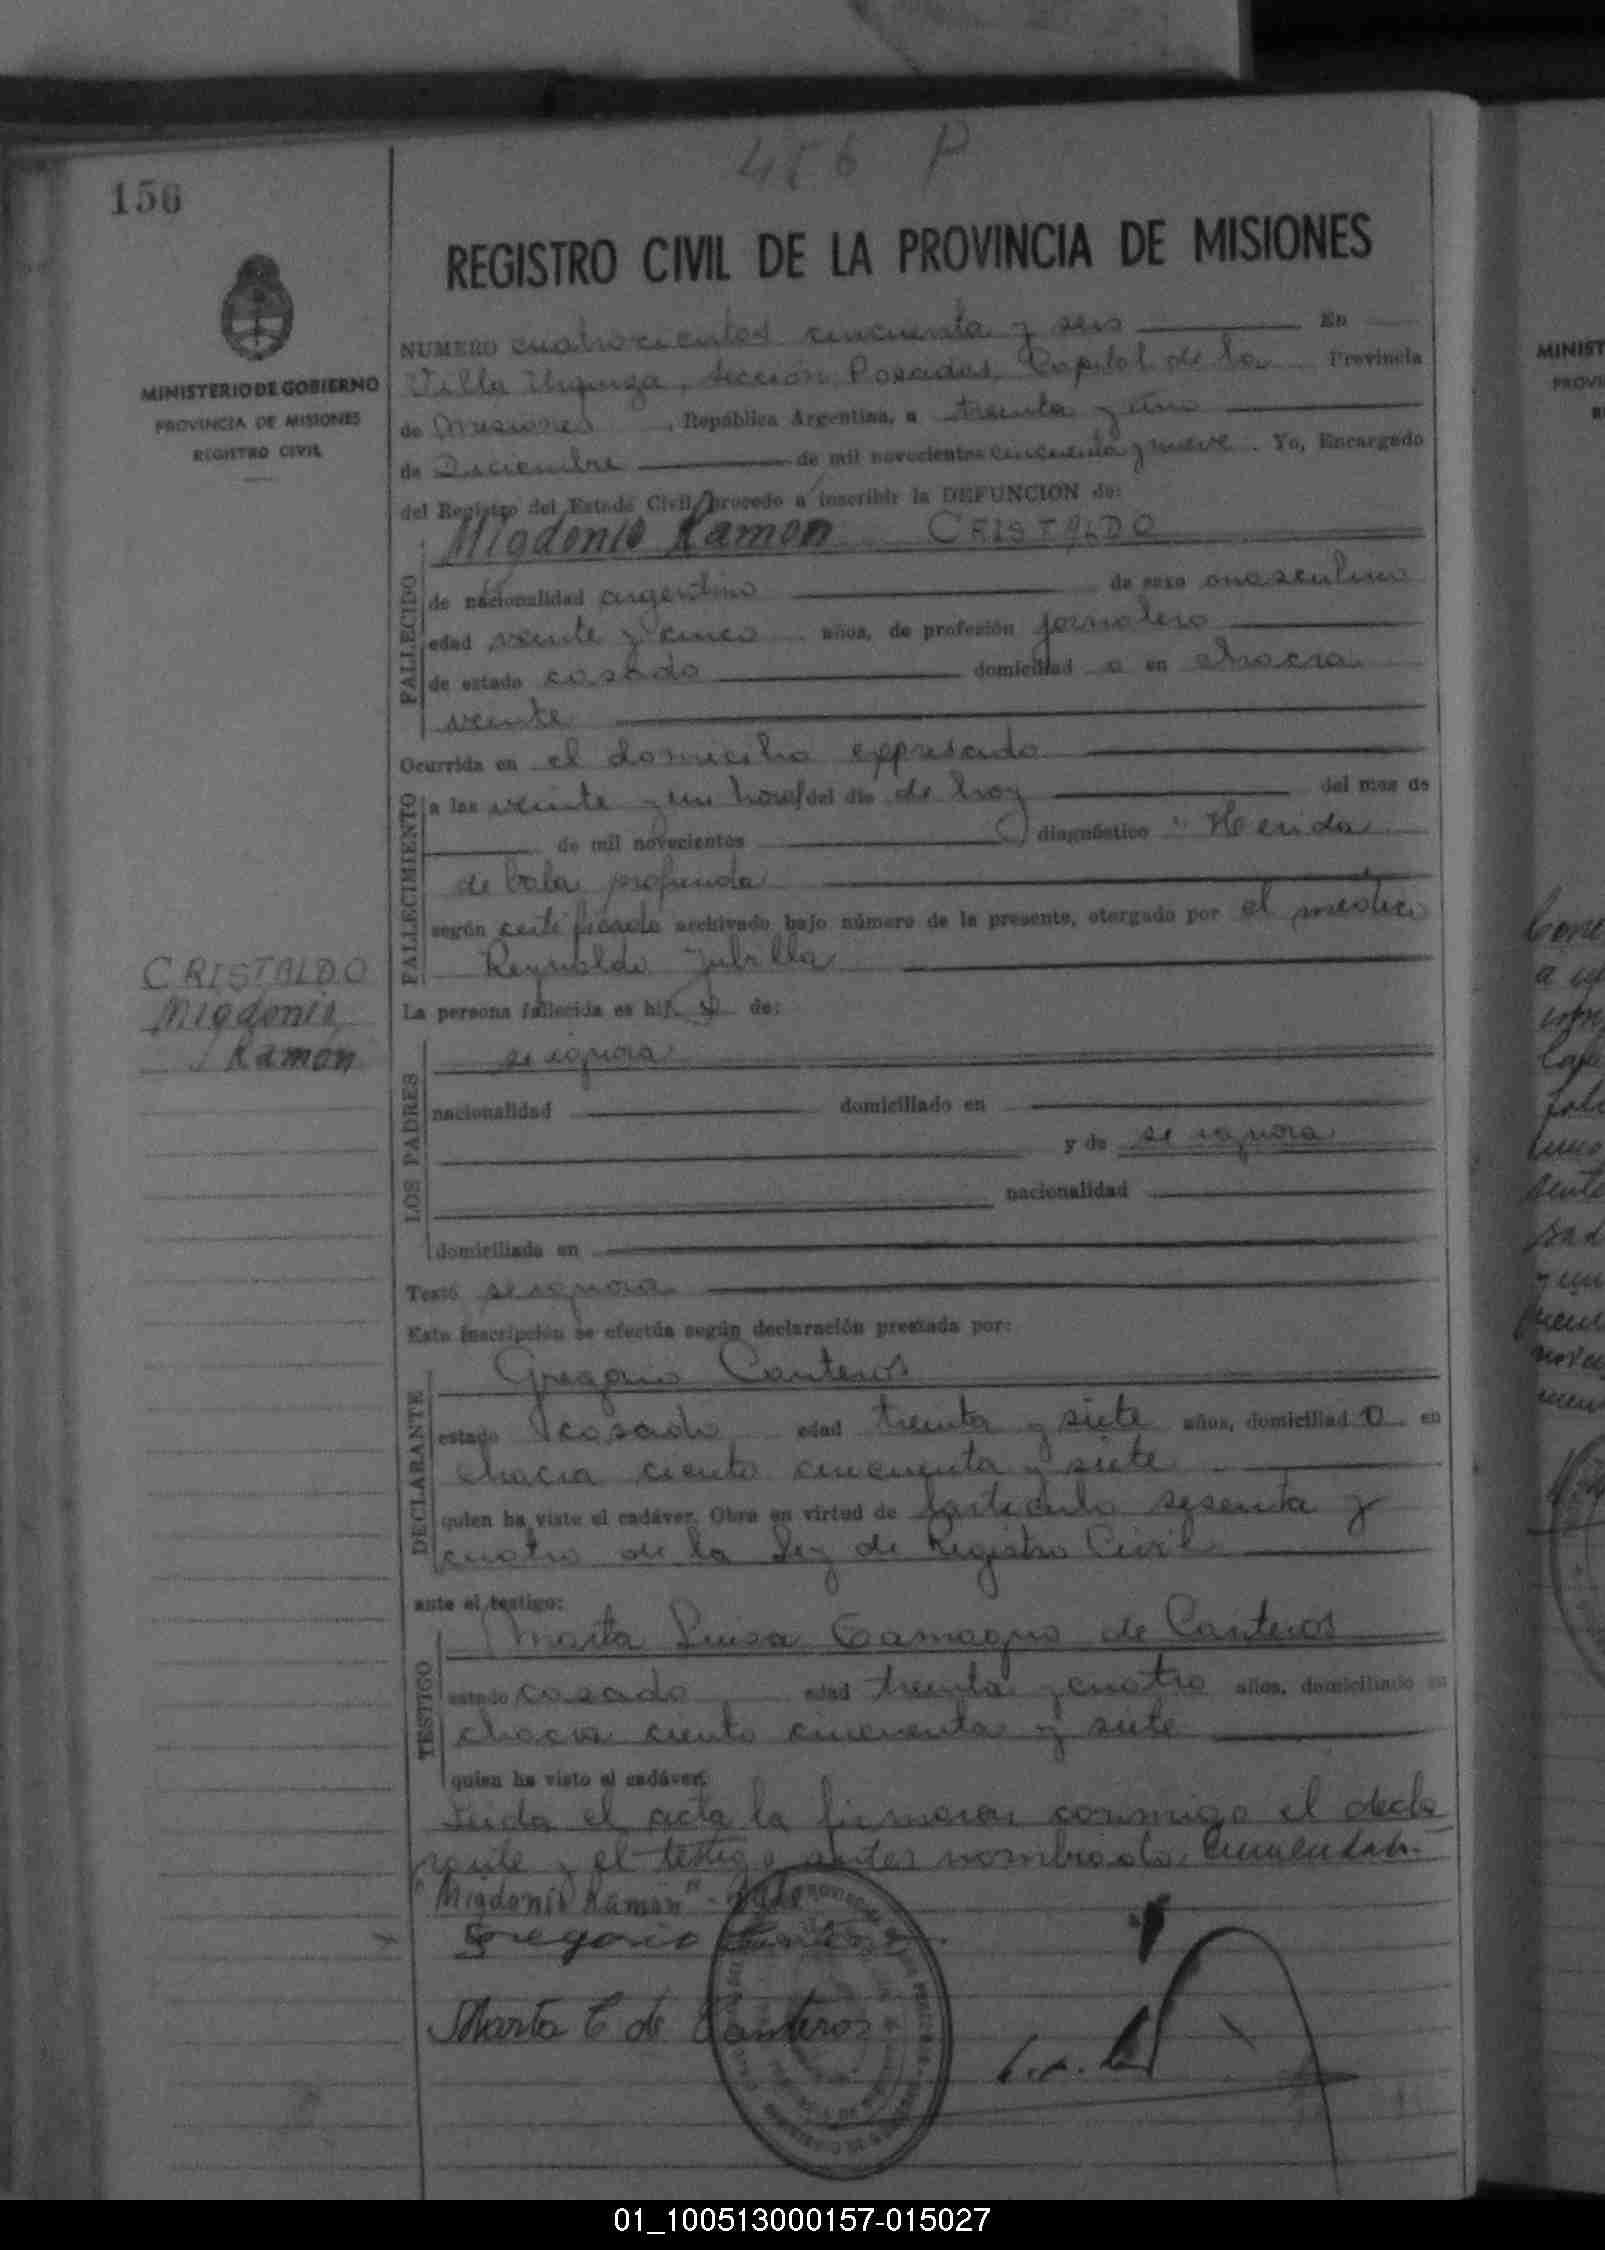 456 P
156
REGISTRO CIVIL DE LA PROVINCIA DE MISIONES
MINISTERIO DE GOBIERNO
PROVINCIA DE MISIONES
REGISTRO CIVIL
NUMERO cuatrocientos cincuenta y seis En
Villa Urquiza, sección Posadas, Capital de la Provincia
de Misiones, República Argentina, a treinta y uno
de Diciembre de mil novecientos cincuenta y nueve. Yo, Encargado
del Registro del Estado Civil, procedo a inscribir la DEFUNCION de:
Migdonio Ramon CRISTALDO
FALLECIDO
de nacionalidad argentino de sexo masculino
edad veinte y cinco años, de profesión jornalero
de estado casado domiciliad o en chacra
veinte
Ocurrida en el domicilio expresado
FALLECIMIENTO
a las veinte y un horas del día de hoy del mes de
de mil novecientos diagnóstico "Herida
de bala profunda
según certificado archivado bajo número de la presente, otorgado por el médico
Reynaldo
CRISTALDO
Migdonio
Ramón
La persona fallecida es hij o de:
LOS PADRES
se ignora
nacionalidad domiciliado en
y de se ignora
nacionalidad
domiciliada en
Testó se ignora
Esta inscripción se efectúa según declaración prestada por:
DECLARANTE
Gregorio Canteros
estado casado edad treinta y siete años, domiciliad o en
chacra ciento cincuenta y siete
quien ha visto el cadáver. Obra en virtud de artículo sesenta y
cuatro de la Ley de Registro Civil
ante el testigo:
TESTIGO
Marta Luisa de Canteros
estado casado edad treinta y cuatro años, domiciliado en
chacra ciento cincuenta y siete
quien ha visto el cadáver.
Leida el acta la firmaron conmigo el decla
rante y el testigo antes nombrado. Enmendado:
"Migdonio Ramón" - Vale
Gregorio Canteros
Marta C de Canteros
MINIST
PROVI
01_100513000157-015027